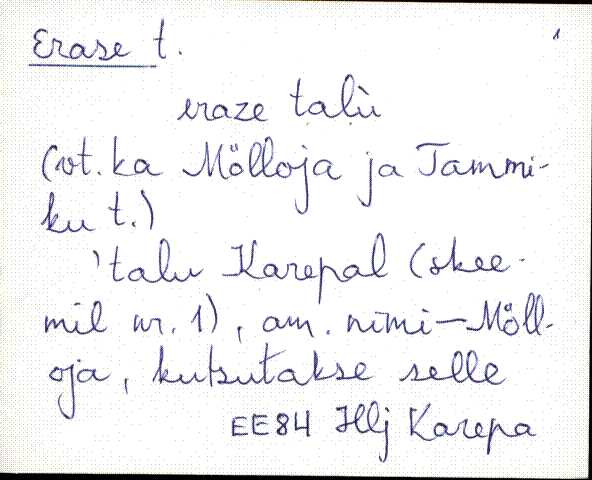 Erase t. 1
eraze talu̇
(vt. ka Mölloja ja Tammi-
ku t.)
'talu Karepal (skee-
mil nr. 1), am. nimi—Möll-
oja, kutsutakse selle
EE84 Hlj Karepa